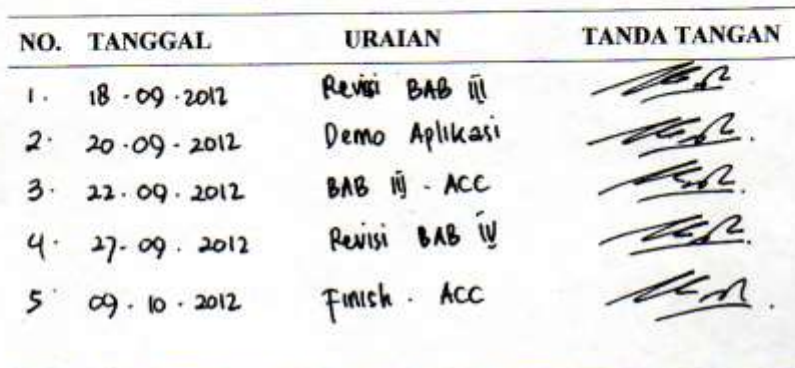 NO. TANGGAL URAIAN TANDA TANGAN
1. 18.09.2012 Revisi BAB III
2. 20.09.2012 Demo Aplikasi
3. 22.09.2012 BAB III - ACC
4. 27-09.2012 Revisi BAB IV
5 09.10.2012 Finish. ACC